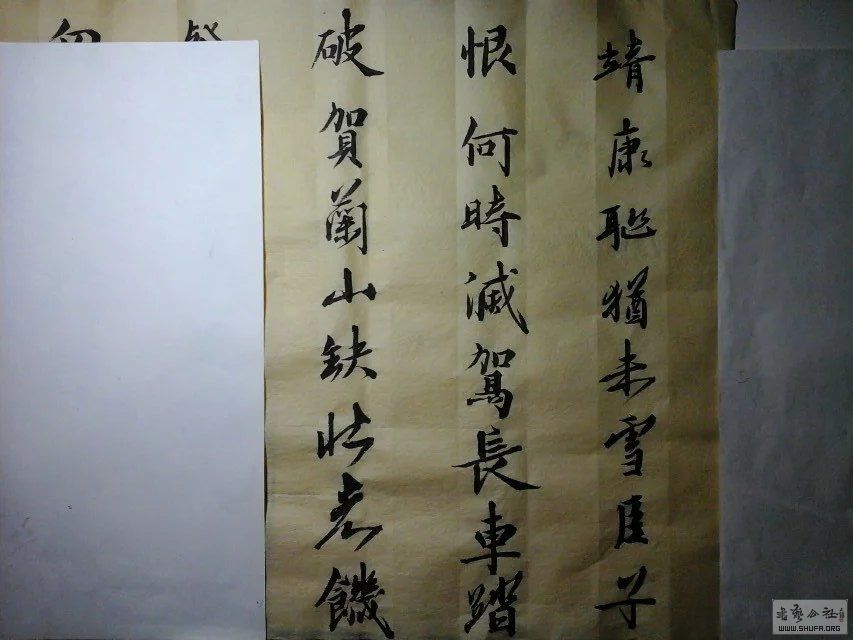 靖康耻猶未雪臣子
恨何時滅駕長車踏
破賀蘭山缺壯志饑
书艺公社
WWW.SHUFA.ORG